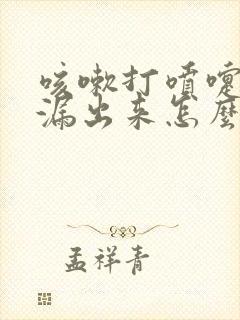 咳嗽打喷嚏
漏出来怎么
孟祥青